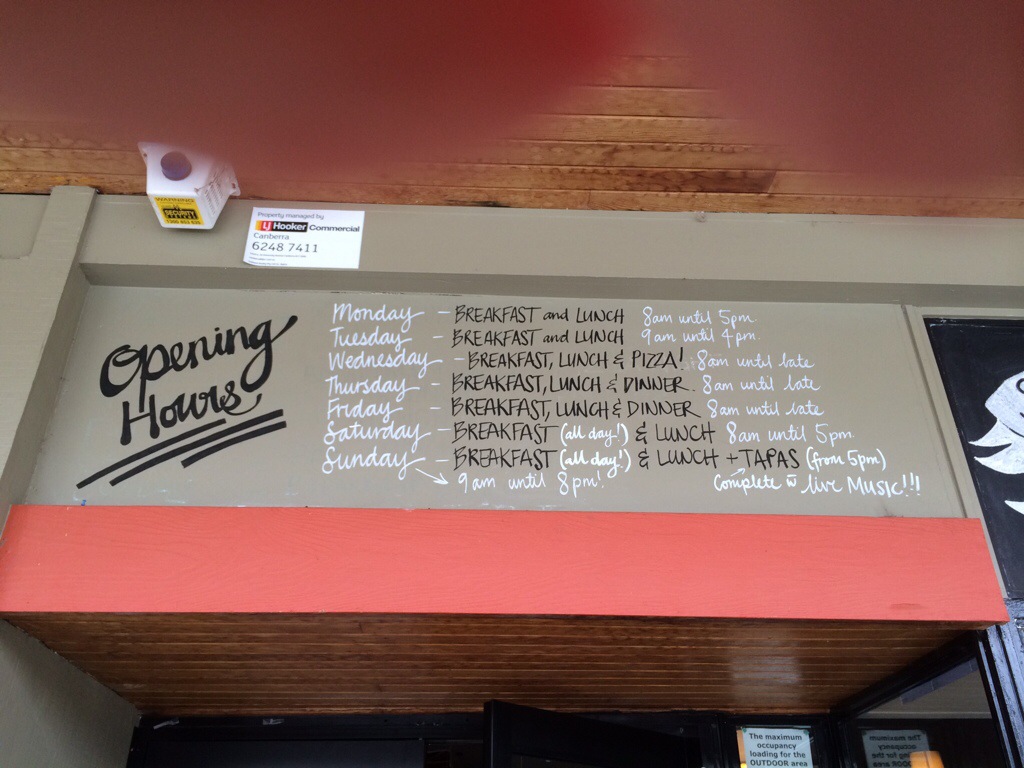 WARNING
Property managed by
LJ Hooker Commercial
Canberra
6248 7411
Opening
Hours
Monday - BREAKFAST and LUNCH 8am until 5pm.
Tuesday - BREAKFAST and LUNCH 9am until 4pm.
Wednesday - BREAKFAST, LUNCH & PIZZA! 8am until late
Thursday - BREAKFAST, LUNCH & DINNER. 8am until late
Friday - BREAKFAST, LUNCH & DINNER 8am until late
Saturday - BREAKFAST (all day!) & LUNCH 8am until 5pm.
Sunday - BREAKFAST (all day!) & LUNCH + TAPAS (from 5pm)
9am until 8pm! Complete w live MUSIC!!!
The maximum
occupancy
loading for the
OUTDOOR area